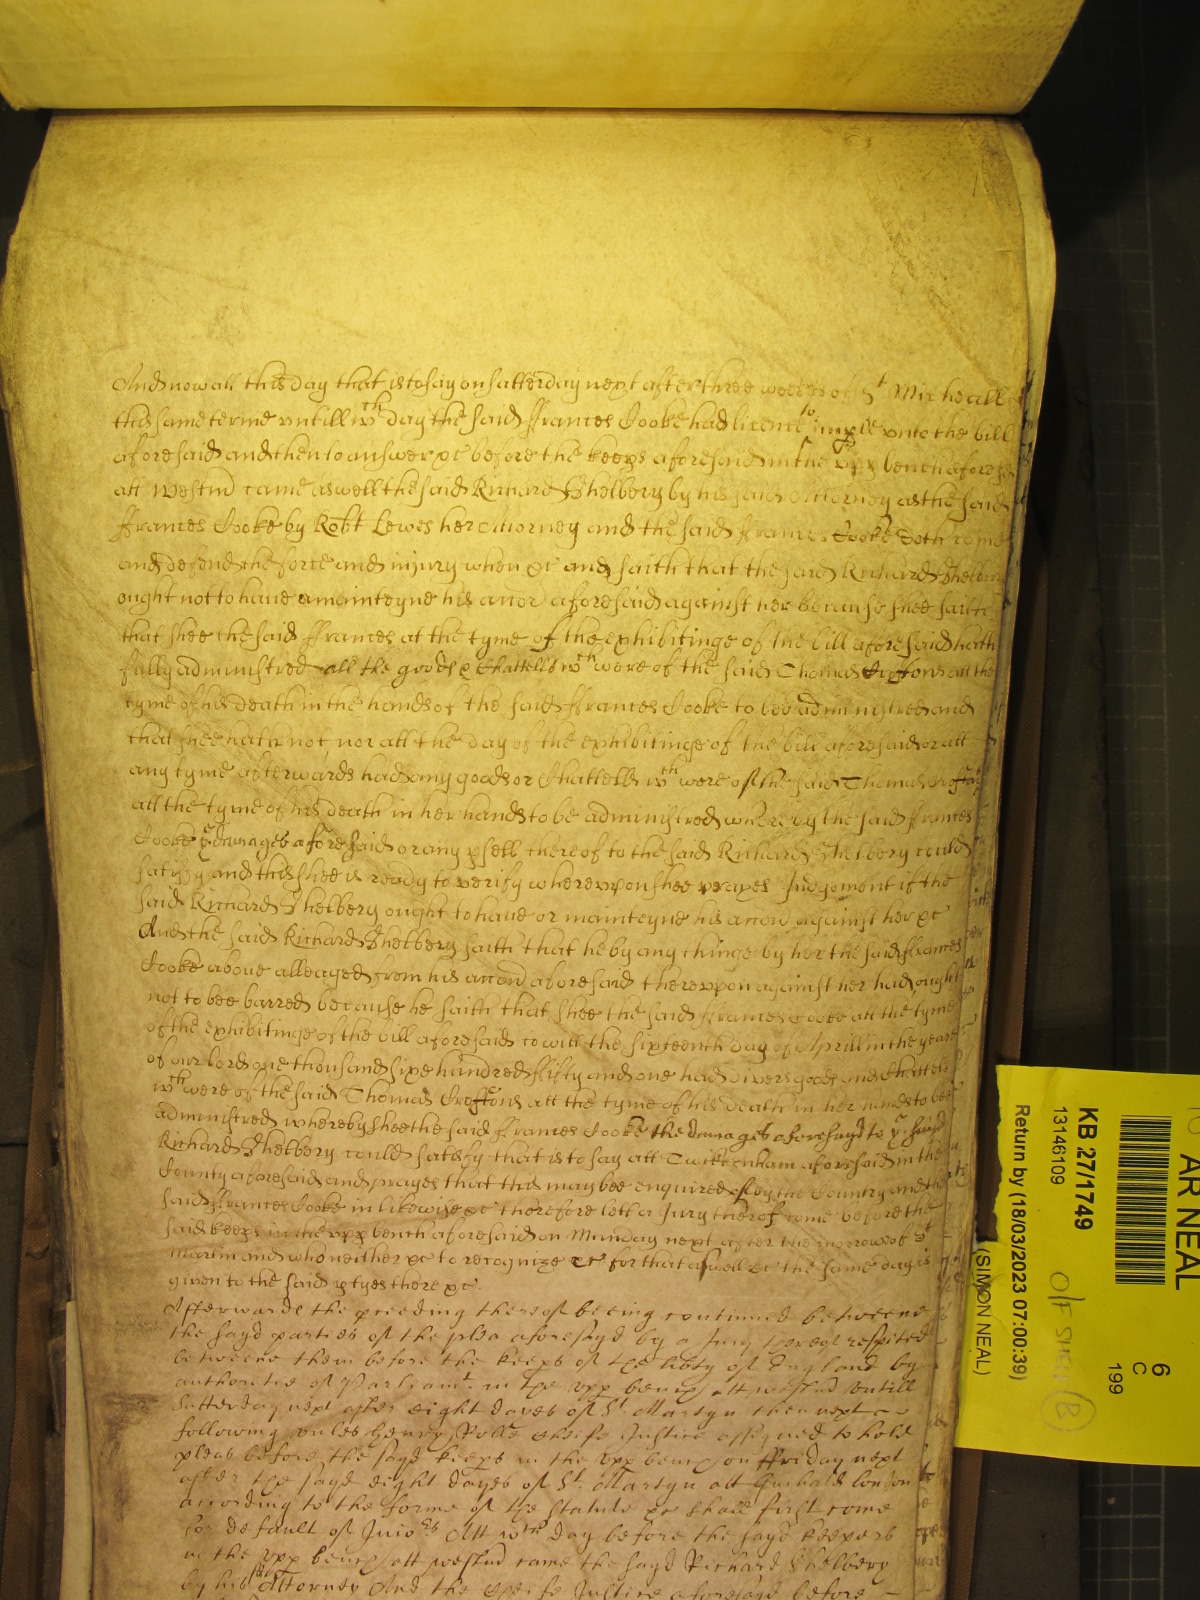 And now att this day that is to say on Satterday next after three weekes of St Micheall
this same terme untill wch day the said Frances Cooke had licence to imparle unto the bill
aforesaid and then to answer &c before the keeprs aforesaid in the upp bench aforesd
att Westmr came aswell the said Richard Shelbery by his said Attorney as the said
Frances Cooke by Robt Lewes her Attorney and the said Frances Cooke doth come
and defend the force and injury when &c and saith that the said Richard Shelbery
ought not to have or mainteyne his accon aforesaid against her because shee saith
that shee the said Frances at the tyme of the exhibitinge of the bill aforesaid hath
fully administred all the goods & Chattells wch were of the said Thomas Croftons att the
tyme of his death in the hands of the said Frances Cooke to bee administred and
that shee hath not nor att the day of the exhibitinge of the bill aforesaid or att
any tyme afterwards had any goods or Chattells wch were of the said Thomas Croftons
att the tyme of his death in her hands to be administred whereby the said Frances
Cooke ye damages aforesaid or any psell thereof to the said Richard Shelbery could
satisfy and this shee is ready to verify whereupon shee prayes Judgement if the
said Richard Shelbery ought to have or mainteyne his accon against her &c
And the said Richard Shelbery saith that he by any thinge by her the said Frances
Cooke above alleaged from his accon aforesaid thereupon against her had ought
not to bee barred because he saith that shee the said Frances Cooke att the tyme
of the exhibitinge of the bill aforesaid to witt the sixteenth day of Aprill in the yeare
of our Lord one thousand sixe hundred fifty and one had divers goods and Chattells
wch were of the said Thomas Croftons att the tyme of his death in her hands to bee
administred whereby shee the said Frances Cooke the damages aforesayd to ye sayd
Richard Shelbery could satisfy that is to say att Twittenham aforesaid in the
County aforesaid and prayes that this may bee enquired of by the Country and the
said Frances Cooke in likewise &c therefore lett a Jury thereof come before the
said keeprs in the upp bench aforesaid on Munday next after the morrow of St
Martin and who neither &c to recognize &c for that aswell &c the same day is
given to the said ptyes there &c
Afterwards the pceeding thereof beeing continued betweene
the sayd parties of the plea aforesayd by a Jury thereof respited
betweene them before the keeps of the libty of England by
authoritie of Parliamt in the upp bench att westmr untill
Satterday next after eight dayes of St Martyn then next
following unles Henry Rolle Cheife Justice assigned to hold
pleas before the sayd keeps in the upp bench on Friday next
after the sayd eight dayes of St Martyn att Guihald london
according to the forme of the statute &c shall first come
for default of Jurors Att wch day before the sayd keepers
in the upp bench att westmr came the sayd Richard Shelbery
by his sd Attorney And the Cheife Justice aforesayd before
KB 27/1749
13146109
Return by (18/03/2023 07:00:39)
(SIMON NEAL)
AR NEAL
6
C
199